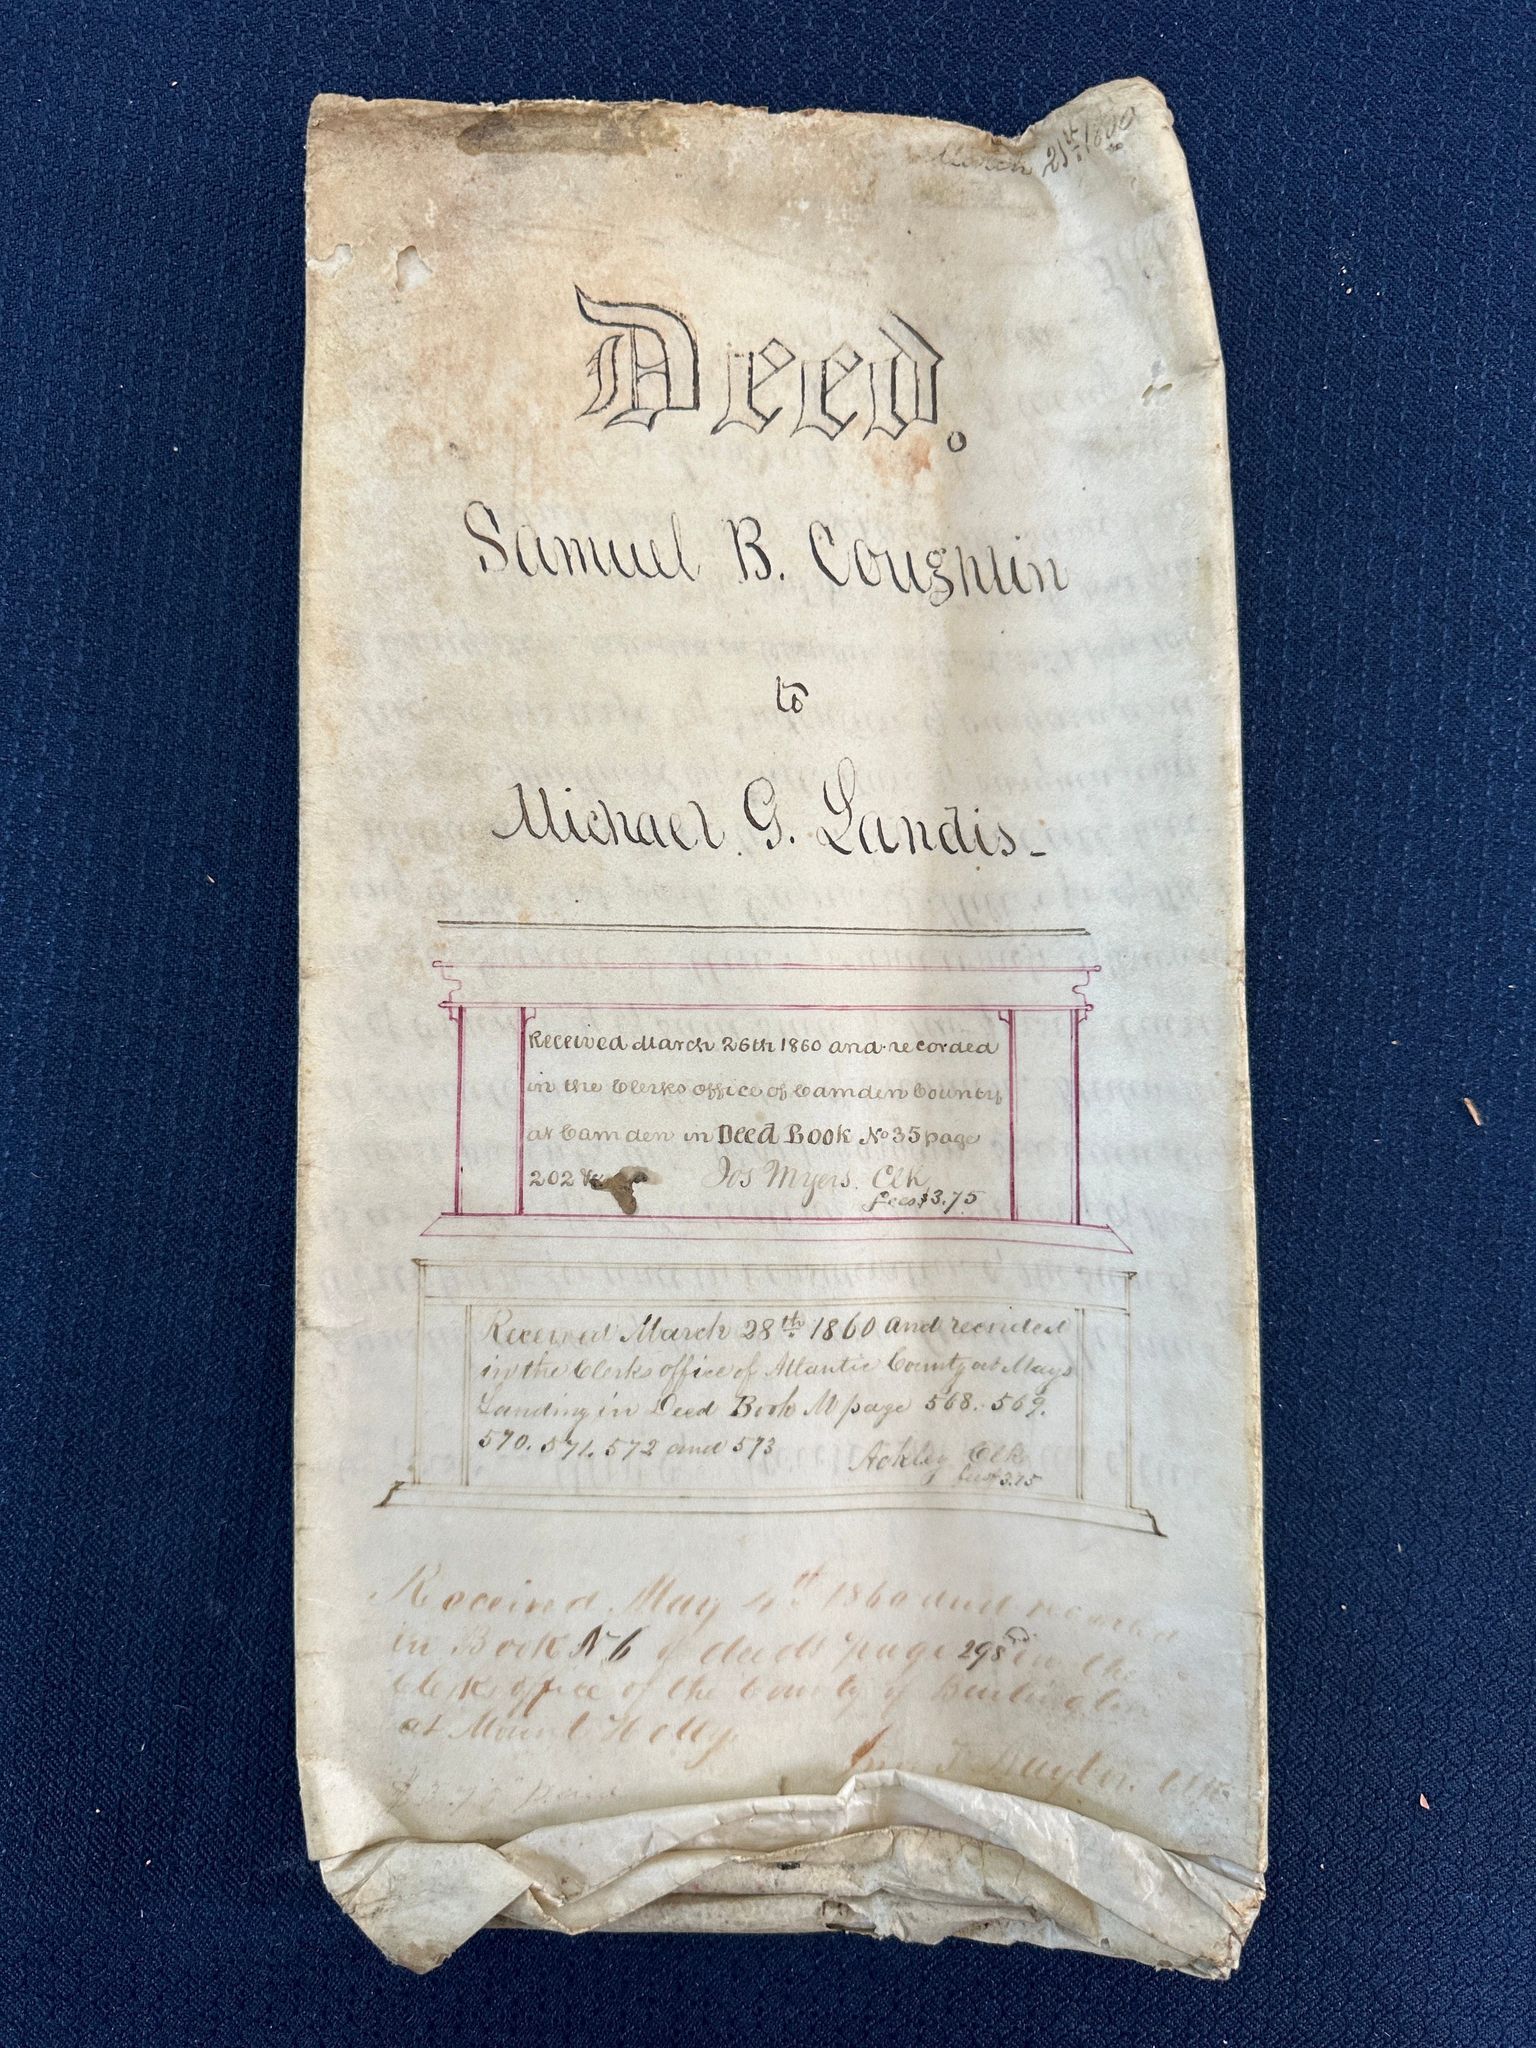 March 21th 1860
Deed.
Samuel B. Coughlin
to
Michael G. Landis-
Received March 26th 1860 and recorded
in the Clerks office of Camden County
at Camden in Deed Book No 35 page
202 &c Jos Myers. Clk
fees $3.75
Received March 28th 1860 and recorded
in the Clerks office of Atlantic County at Mays
Landing in Deed Book M page 568. 569.
570. 571. 572 and 573
Ackley Clk
fees 3.75
Received May 4th 1860 and recorded
in Book N 6 of deeds page 298 in the
Clerks office of the County of Burlington
at Mount Holly
Clk